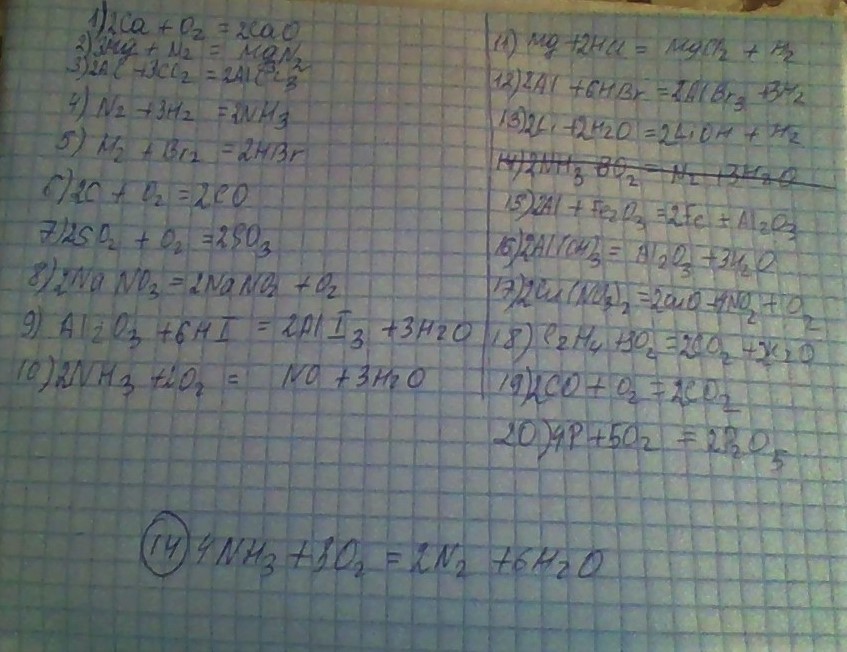 1) 2Ca + O2 = 2CaO
2) 3Mg + N2 = Mg3N2
3) 2Al + 3Cl2 = 2AlCl3
4) N2 + 3H2 = 2NH3
5) H2 + Br2 = 2HBr
6) 2C + O2 = 2CO
7) 2SO2 + O2 = 2SO3
8) 2NaNO3 = 2NaNO2 + O2
9) Al2O3 + 6HI = 2AlI3 + 3H2O
10) 2NH3 + 2O2 = NO + 3H2O
11) Mg + 2HCl = MgCl2 + H2
12) 2Al + 6HBr = 2AlBr3 + 3H2
13) 2Li + 2H2O = 2LiOH + H2
14) 2NH3 3O2 = N2 + 3H2O
15) 2Al + Fe2O3 = 2Fe + Al2O3
16) 2Al(OH)3 = Al2O3 + 3H2O
17) 2Cu(NO3)2 = 2CuO + 4NO2 + O2
18) C2H4 + 3O2 = 2CO2 + 2H2O
19) 2CO + O2 = 2CO2
20) 4P + 5O2 = 2P2O5
14 4NH3 + 3O2 = 2N2 + 6H2O